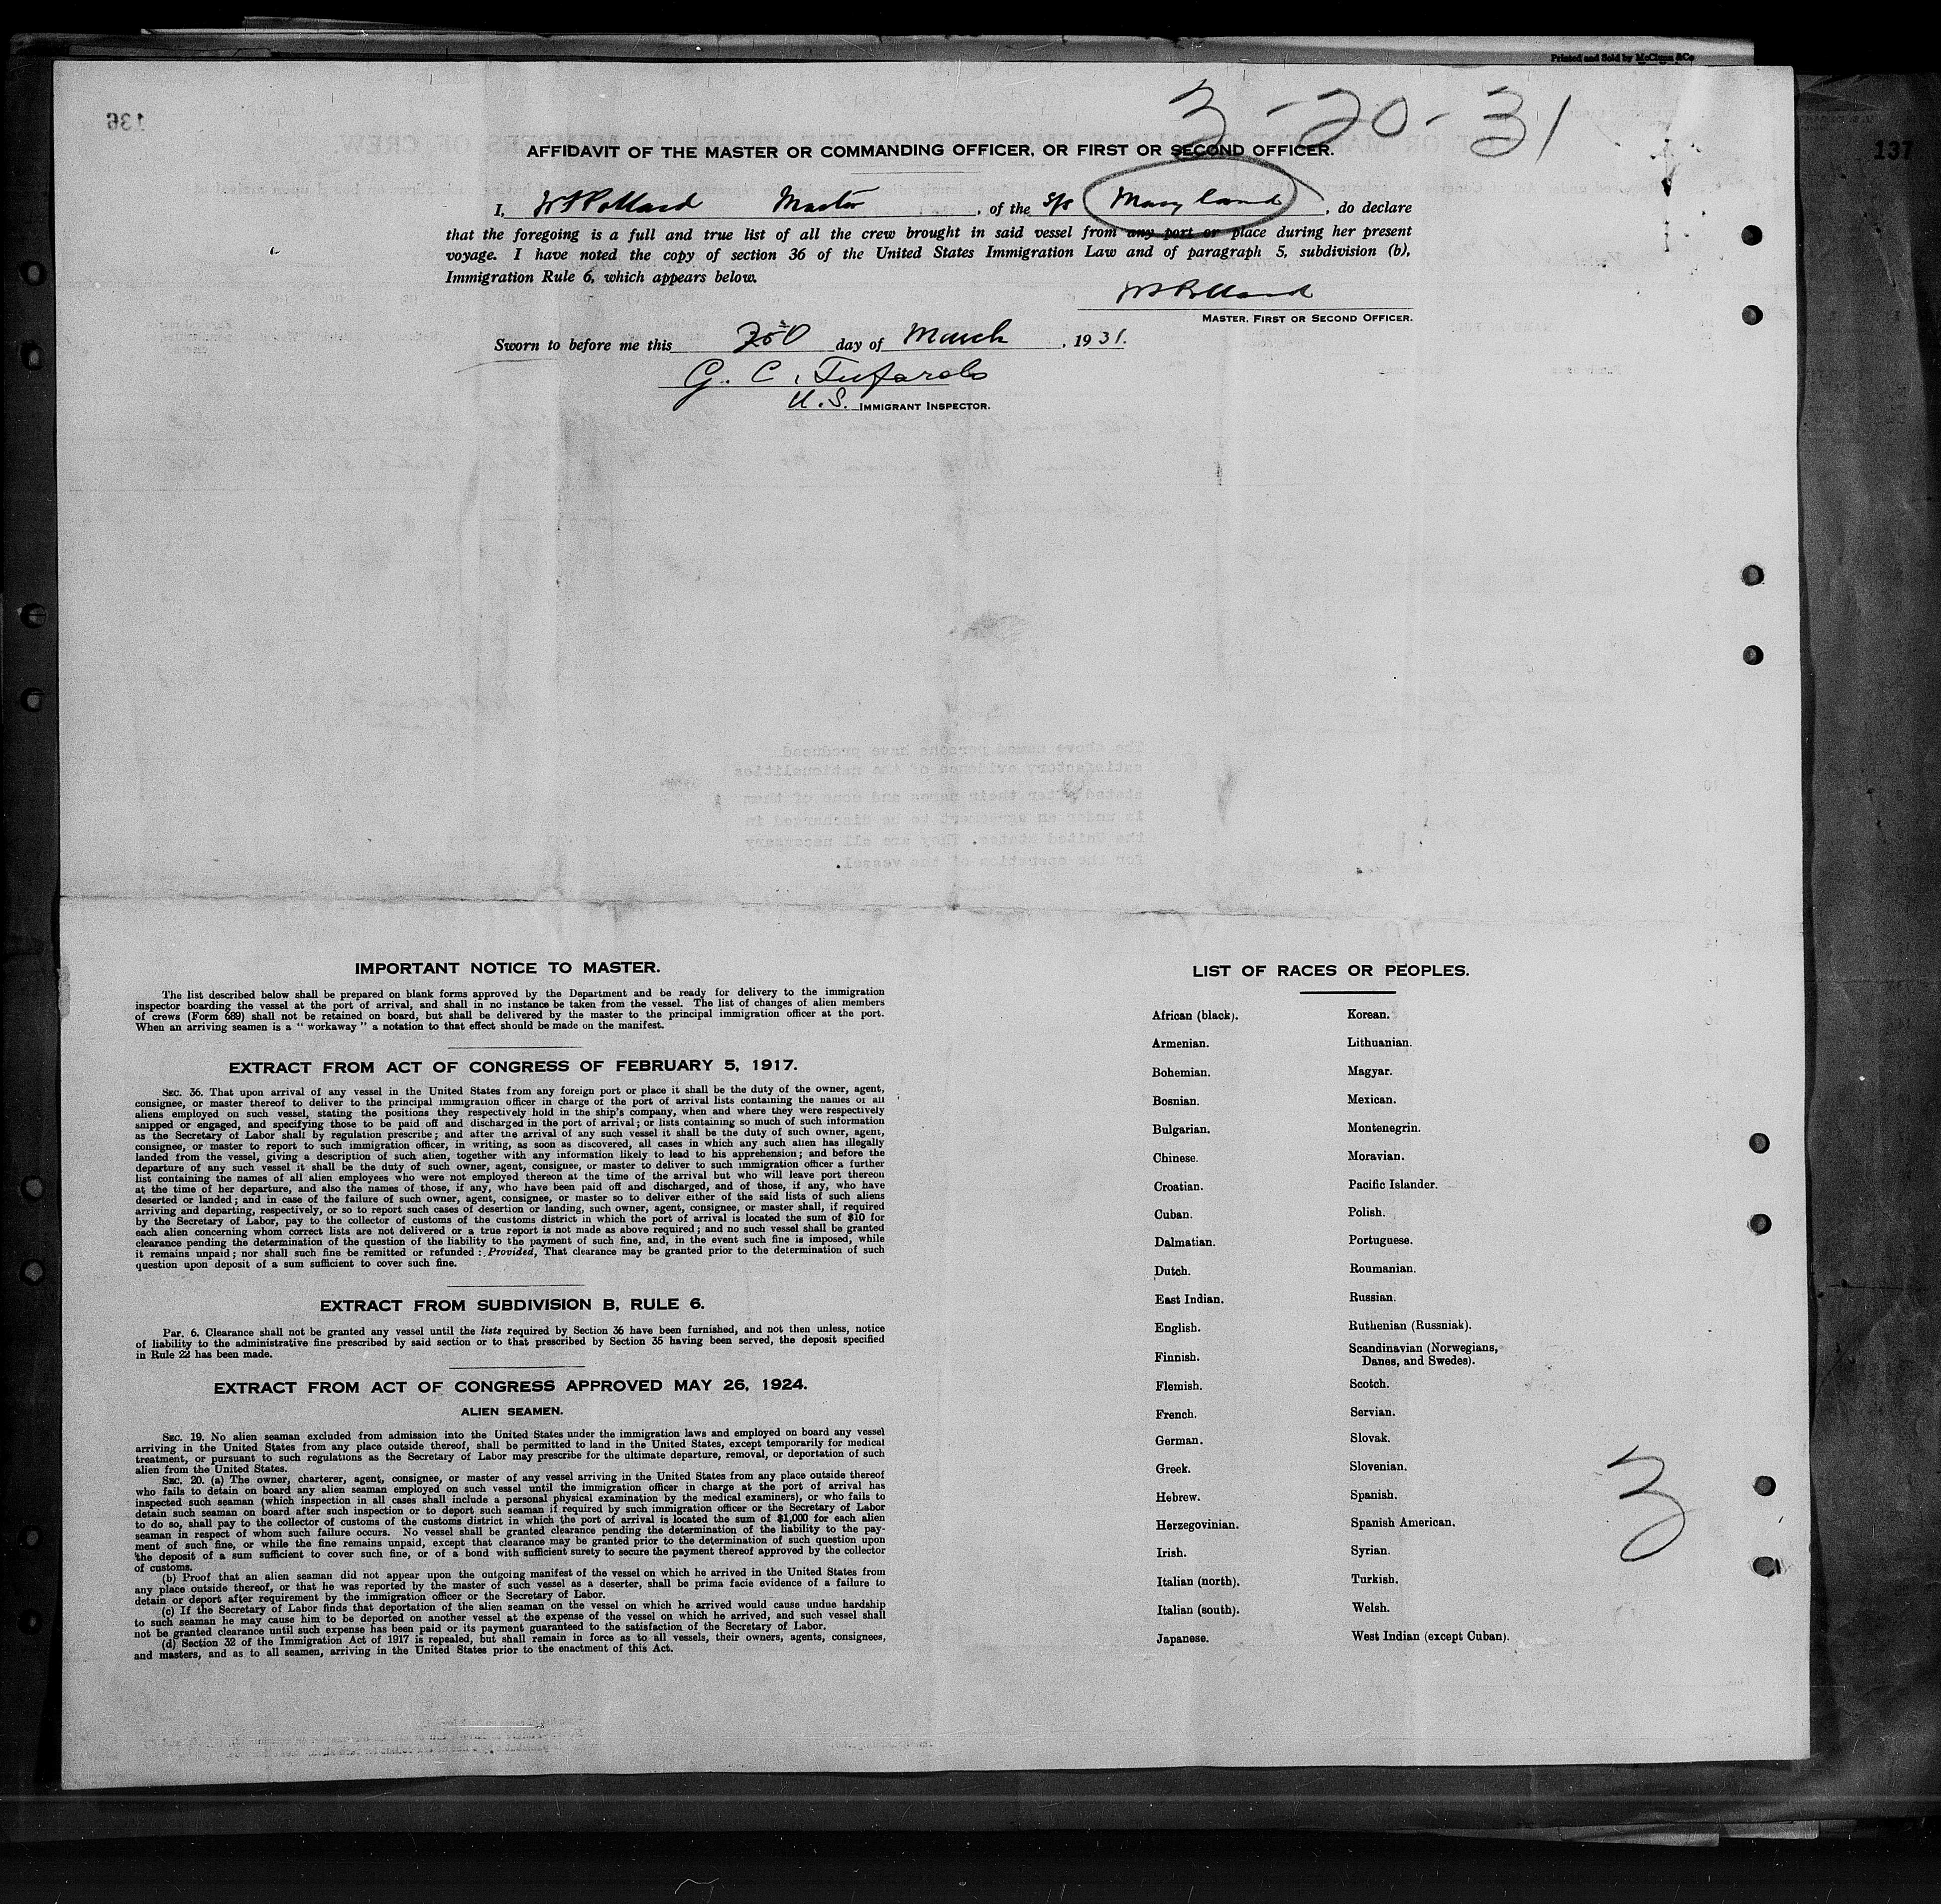 Printed and Sold by McClunn &Co
136
3-20-31
137
AFFIDAVIT OF THE MASTER OR COMMANDING OFFICER, OR FIRST OR SECOND OFFICER.
I, W S Pollard Master, of the S/S Maryland, do declare
that the foregoing is a full and true list of all the crew brought in said vessel from any port or place during her present
voyage. I have noted the copy of section 36 of the United States Immigration Law and of paragraph 5, subdivision (b),
Immigration Rule 6, which appears below.
W S Pollard
MASTER, FIRST OR SECOND OFFICER.
Sworn to before me this day of March, 1931.
G. C. Tufarolo
U.S. IMMIGRANT INSPECTOR.
The above named persons have produced
satisfactory evidence of the nationalities
stated after their names and none of them
is under an agreement to be discharged in
the United states. They are all necessary
for the operation of the vessel.
IMPORTANT NOTICE TO MASTER.
The list described below shall be prepared on blank forms approved by the Department and be ready for delivery to the immigration
inspector boarding the vessel at the port of arrival, and shall in no instance be taken from the vessel. The list of changes of alien members
of crews (Form 689) shall not be retained on board, but shall be delivered by the master to the principal immigration officer at the port.
When an arriving seamen is a "workaway" a notation to that effect should be made on the manifest.
EXTRACT FROM ACT OF CONGRESS OF FEBRUARY 5, 1917.
SEC. 36. That upon arrival of any vessel in the United States from any foreign port or place it shall be the duty of the owner, agent,
consignee, or master thereof to deliver to the principal immigration officer in charge of the port of arrival lists containing the names of all
aliens employed on such vessel, stating the positions they respectively hold in the ship's company, when and where they were respectively
snipped or engaged, and specifying those to be paid off and discharged in the port of arrival; or lists containing so much of such information
as the Secretary of Labor shall by regulation prescribe; and after the arrival of any such vessel it shall be the duty of such owner, agent,
consignee, or master to report to such immigration officer, in writing, as soon as discovered, all cases in which any such alien has illegally
landed from the vessel, giving a description of such alien, together with any information likely to lead to his apprehension; and before the
departure of any such vessel it shall be the duty of such owner, agent, consignee, or master to deliver to such immigration officer a further
list containing the names of all alien employees who were not employed thereon at the time of the arrival but who will leave port thereon
at the time of her departure, and also the names of those, if any, who have been paid off and discharged, and of those, if any, who have
deserted or landed; and in case of the failure of such owner, agent, consignee, or master so to deliver either of the said lists of such aliens
arriving and departing, respectively, or so to report such cases of desertion or landing, such owner, agent, consignee, or master shall, if required
by the Secretary of Labor, pay to the collector of customs of the customs district in which the port of arrival is located the sum of $10 for
each alien concerning whom correct lists are not delivered or a true report is not made as above required; and no such vessel shall be granted
clearance pending the determination of the question of the liability to the payment of such fine, and, in the event such fine is imposed, while
it remains unpaid; nor shall such fine be remitted or refunded: Provided, That clearance may be granted prior to the determination of such
question upon deposit of a sum sufficient to cover such fine.
EXTRACT FROM SUBDIVISION B, RULE 6.
Par. 6. Clearance shall not be granted any vessel until the lists required by Section 36 have been furnished, and not then unless, notice
of liability to the administrative fine prescribed by said section or to that prescribed by Section 35 having been served, the deposit specified
in Rule 22 has been made.
EXTRACT FROM ACT OF CONGRESS APPROVED MAY 26, 1924.
ALIEN SEAMEN.
SEC. 19. No alien seaman excluded from admission into the United States under the immigration laws and employed on board any vessel
arriving in the United States from any place outside thereof, shall be permitted to land in the United States, except temporarily for medical
treatment, or pursuant to such regulations as the Secretary of Labor may prescribe for the ultimate departure, removal, or deportation of such
alien from the United States.
SEC. 20. (a) The owner, charterer, agent, consignee, or master of any vessel arriving in the United States from any place outside thereof
who fails to detain on board any alien seaman employed on such vessel until the immigration officer in charge at the port of arrival has
inspected such seaman (which inspection in all cases shall include a personal physical examination by the medical examiners), or who fails to
detain such seaman on board after such inspection or to deport such seaman if required by such immigration officer or the Secretary of Labor
to do so, shall pay to the collector of customs of the customs district in which the port of arrival is located the sum of $1,000 for each alien
seaman in respect of whom such failure occurs. No vessel shall be granted clearance pending the determination of the liability to the pay-
ment of such fine, or while the fine remains unpaid, except that clearance may be granted prior to the determination of such question upon
the deposit of a sum sufficient to cover such fine, or of a bond with sufficient surety to secure the payment thereof approved by the collector
of customs.
(b) Proof that an alien seaman did not appear upon the outgoing manifest of the vessel on which he arrived in the United States from
any place outside thereof, or that he was reported by the master of such vessel as a deserter, shall be prima facie evidence of a failure to
detain or deport after requirement by the immigration officer or the Secretary of Labor.
(c) If the Secretary of Labor finds that deportation of the alien seaman on the vessel on which he arrived would cause undue hardship
to such seaman he may cause him to be deported on another vessel at the expense of the vessel on which he arrived, and such vessel shall
not be granted clearance until such expense has been paid or its payment guaranteed to the satisfaction of the Secretary of Labor.
(d) Section 32 of the Immigration Act of 1917 is repealed, but shall remain in force as to all vessels, their owners, agents, consignees,
and masters, and as to all seamen, arriving in the United States prior to the enactment of this Act.
LIST OF RACES OR PEOPLES.
African (black). Korean.
Armenian. Lithuanian.
Bohemian. Magyar.
Bosnian. Mexican.
Bulgarian. Montenegrin.
Chinese. Moravian.
Croatian. Pacific Islander.
Cuban. Polish.
Dalmatian. Portuguese.
Dutch. Roumanian.
East Indian. Russian.
English. Ruthenian (Russniak).
Finnish. Scandinavian (Norwegians,
Danes, and Swedes).
Flemish. Scotch.
French. Servian.
German. Slovak.
Greek. Slovenian.
Hebrew. Spanish.
Herzegovinian. Spanish American.
Irish. Syrian.
Italian (north). Turkish.
Italian (south). Welsh.
Japanese. West Indian (except Cuban).
3